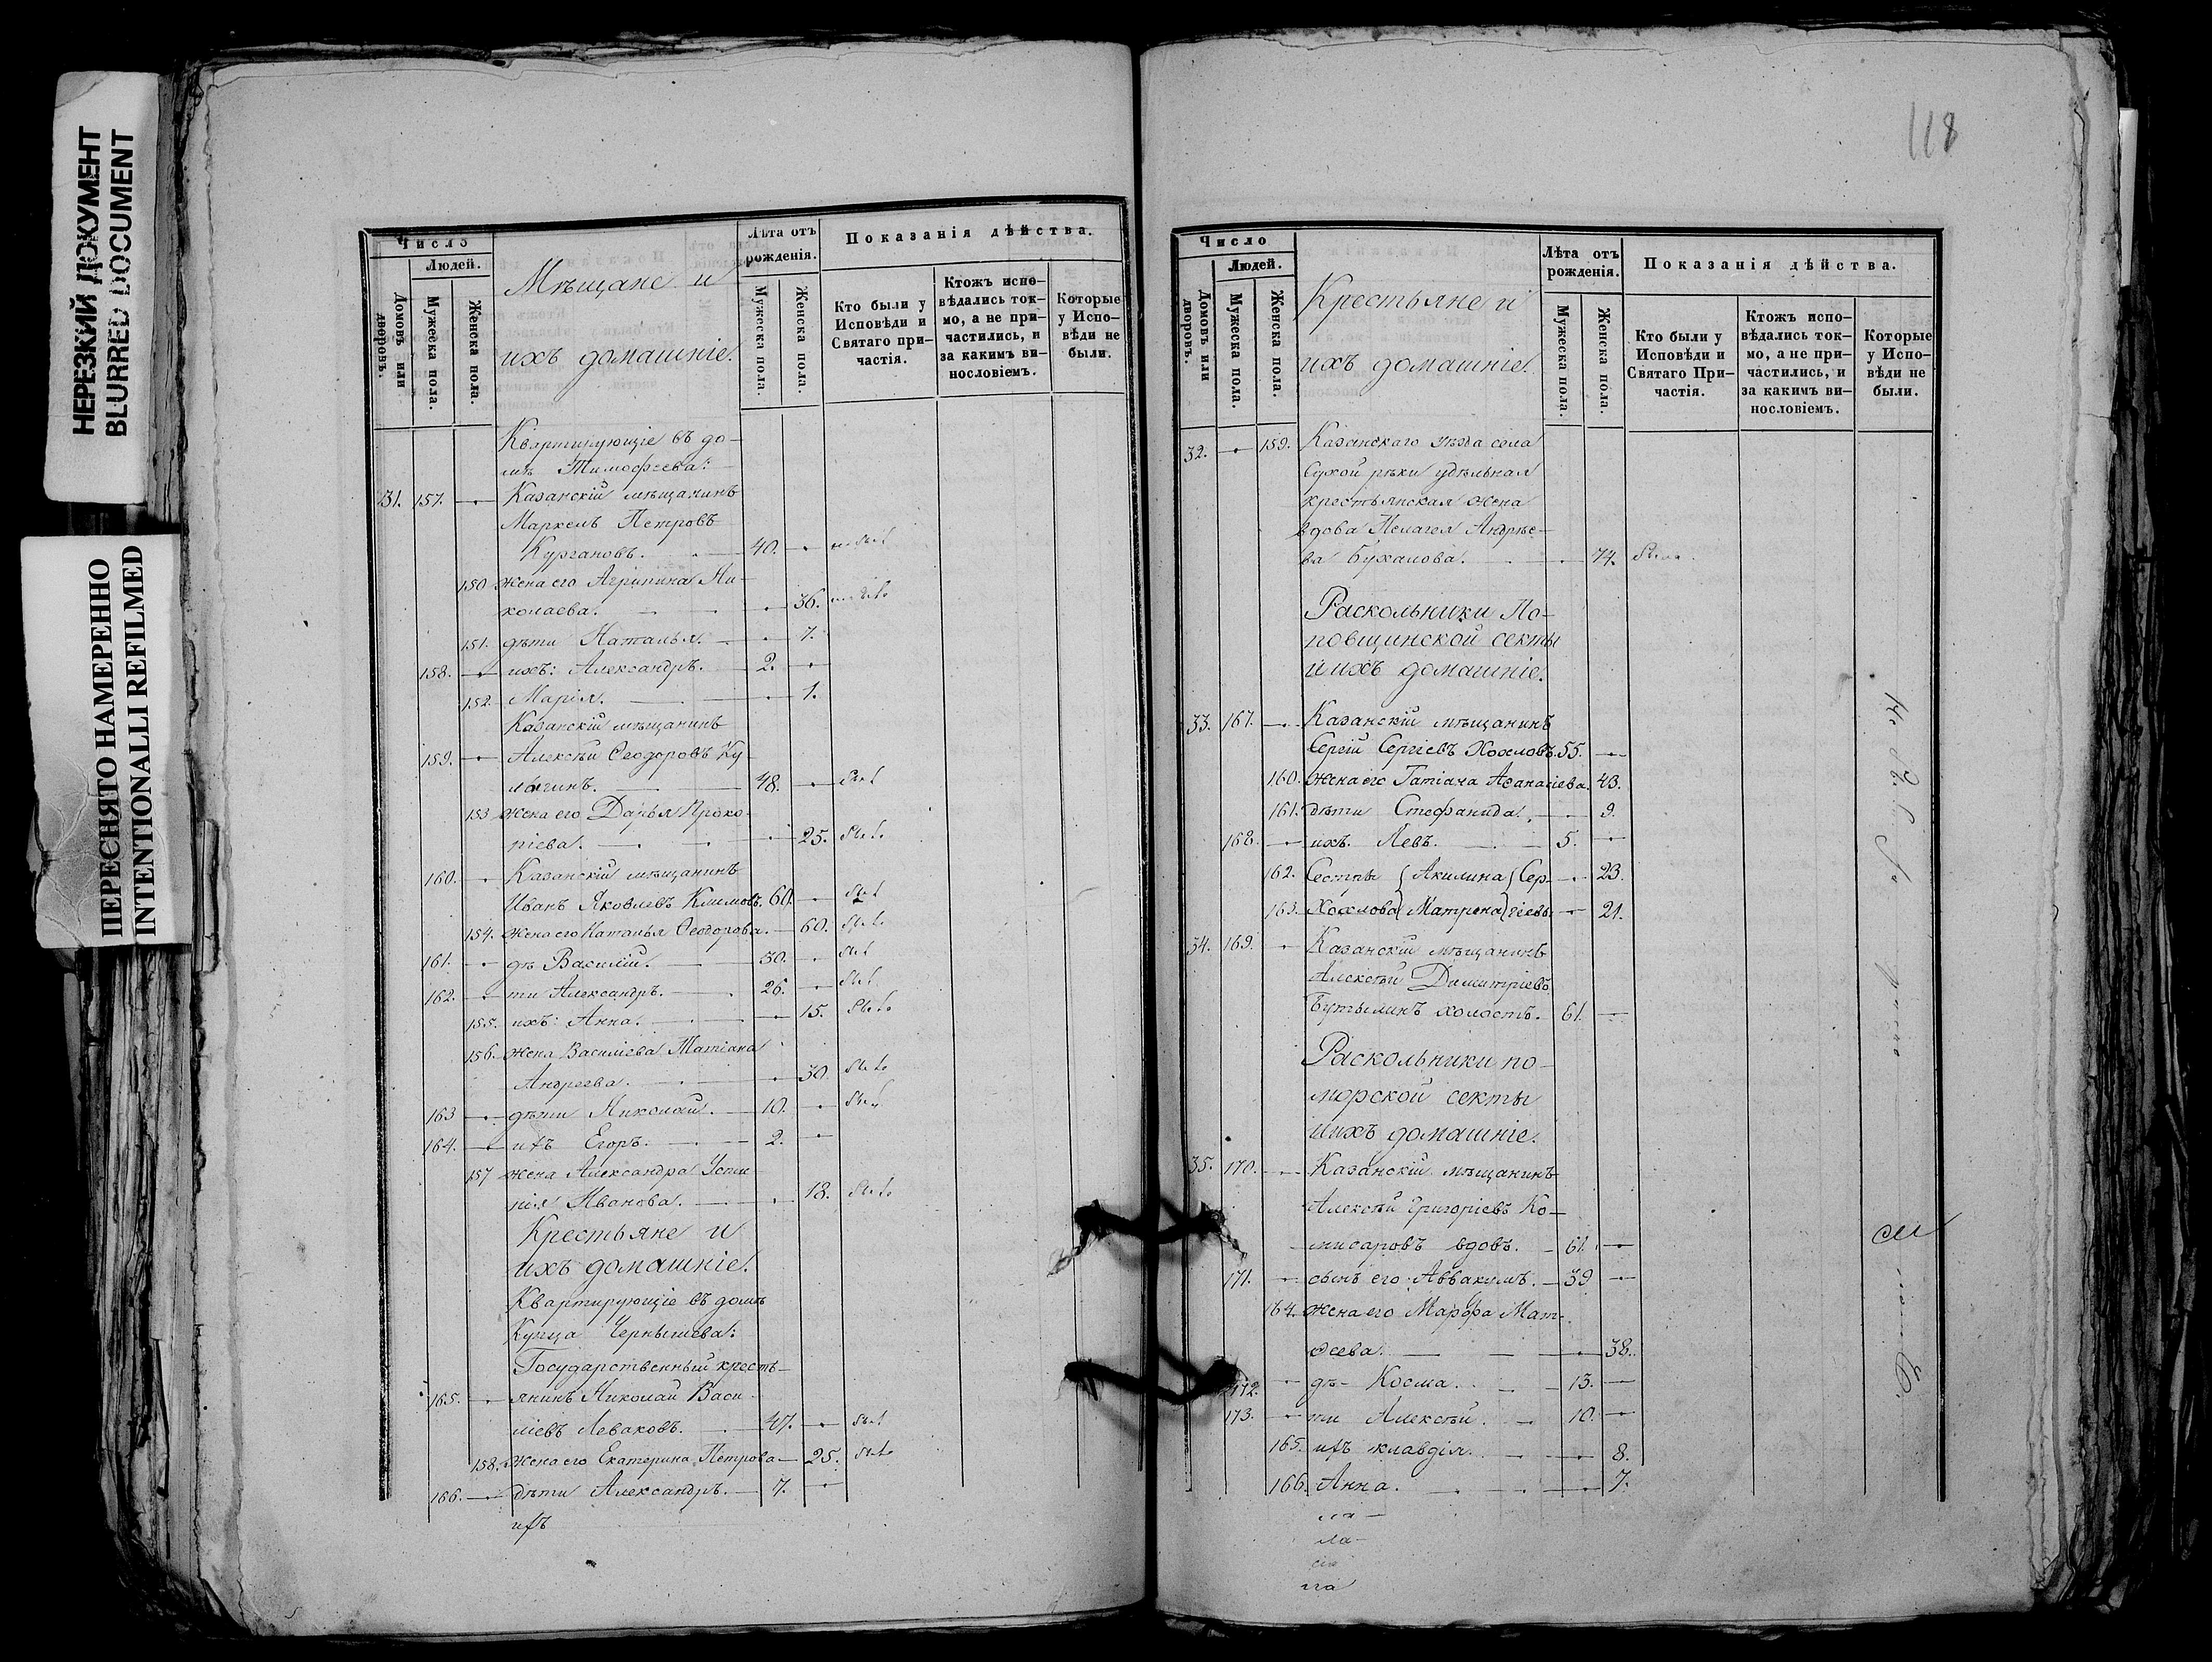 НЕРЕЗКИЙ ДОКУМЕНТ
BLURRED DOCUMENT
ПЕРЕСНЯТО НАМЕРЕННО
INTENTIONALLI REFILMED
Число
Людей.
Домовъ или дворовъ.
Мужеска пола.
Женска пола.
Мѣщане и
ихъ домашніе.
Лѣта отъ рожденія.
Мужеска пола.
Женска пола.
Показанія дѣйства.
Кто были у Исповѣди и Святаго при-частія.
Ктожъ испо-вѣдались ток-мо, а не при-частились, и за какимъ ви-нословіемъ.
Которые у Испо-вѣди не были.
Квартирующіе въ до-
мѣ Тимофеева:
31. 157. Казанскій мѣщанинъ
Маркелъ Петровъ
Кургановъ. 40.
150 жена его Агрипина Ни-
колаева. 36.
151. дѣти Наталья. 7.
158. ихъ: Александръ. 2.
152. Марія. 1.
Казанскій мѣщанинъ
159. Алексѣй Ѳеодоровъ Ку-
лагинъ. 48. былъ
153 жена его Дарья Проко-
піева. 25. была
160. Казанскій мѣщанинъ
Иванъ Яковлевъ Климовъ. 60. былъ
154. жена его Наталья Ѳеодорова. 60. была
161. дѣ Василій. 30. былъ
162. ти Александръ. 26. былъ
155. ихъ: Анна. 15. была
156. жена Василіева Татіана
Андреева. 30. была
163 дѣти Николай. 10. былъ
164. ихъ Егоръ. 2.
157 жена Александра Усти-
нія Иванова. 18. была
Крестьяне и
ихъ домашніе.
Квартирующіе въ домѣ
Купца Чернышева:
Государственный кресть-
165. янинъ Николай Васи-
ліевъ Леваковъ. 47. былъ
158. жена его Екатерина Петрова 25. была
166. дѣти Александръ. 7.
ихъ
118
Число
Людей.
Домовъ или дворовъ.
Мужеска пола.
Женска пола.
Крестьяне и
ихъ домашніе.
Лѣта отъ рожденія.
Мужеска пола.
Женска пола.
Показанія дѣйства.
Кто были у Исповѣди и Святаго При-частія.
Ктожъ испо-вѣдались ток-мо, а не при-частились, и за какимъ ви-нословіемъ.
Которые у Испо-вѣди не были.
32. 159. Казанскаго уѣзда села
Сухой рѣки удѣльная
крестьянская жена
вдова Пелагея Андрее-
ва Бухалова. 74. была
Раскольники По-
повщинской секты
и ихъ домашніе.
33. 167. Казанскій мѣщанинъ
Сергій Сергіевъ Хохловъ. 55.
160. жена его Татіана Аѳанасіева. 43.
161. дѣти Стефанида. 9.
168. ихъ. Левъ. 5.
162. Сестры Акилина Сер- 23.
163. Хохлова Матрона гіевы 21.
34. 169. Казанскій мѣщанинъ
Алексѣй Димитріевъ
Бутылинъ холостъ. 61.
Раскольники по-
морской секты
и ихъ домашніе.
35. 170. Казанскій мѣщанинъ
Алексѣй Григоріевъ Ко-
мисаровъ вдовъ. 61.
171. сынъ его Аввакумъ. 39
164. жена его Марѳа Мат-
ѳеева. 38.
172. дѣ- Косма. 13.
173. ти Алексѣй. 10.
165. ихъ клавдія. 8.
166. Анна. 7.